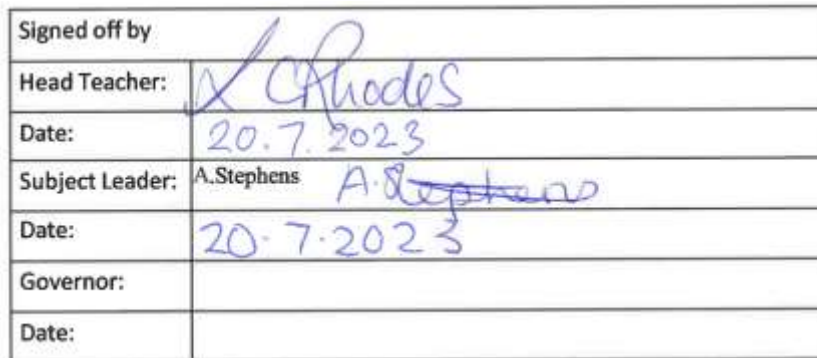 Signed off by
Head Teacher: C Rhodes
Date: 20.7.2023
Subject Leader: A.Stephens A.Stephens
Date: 20.7.2023
Governor:
Date: